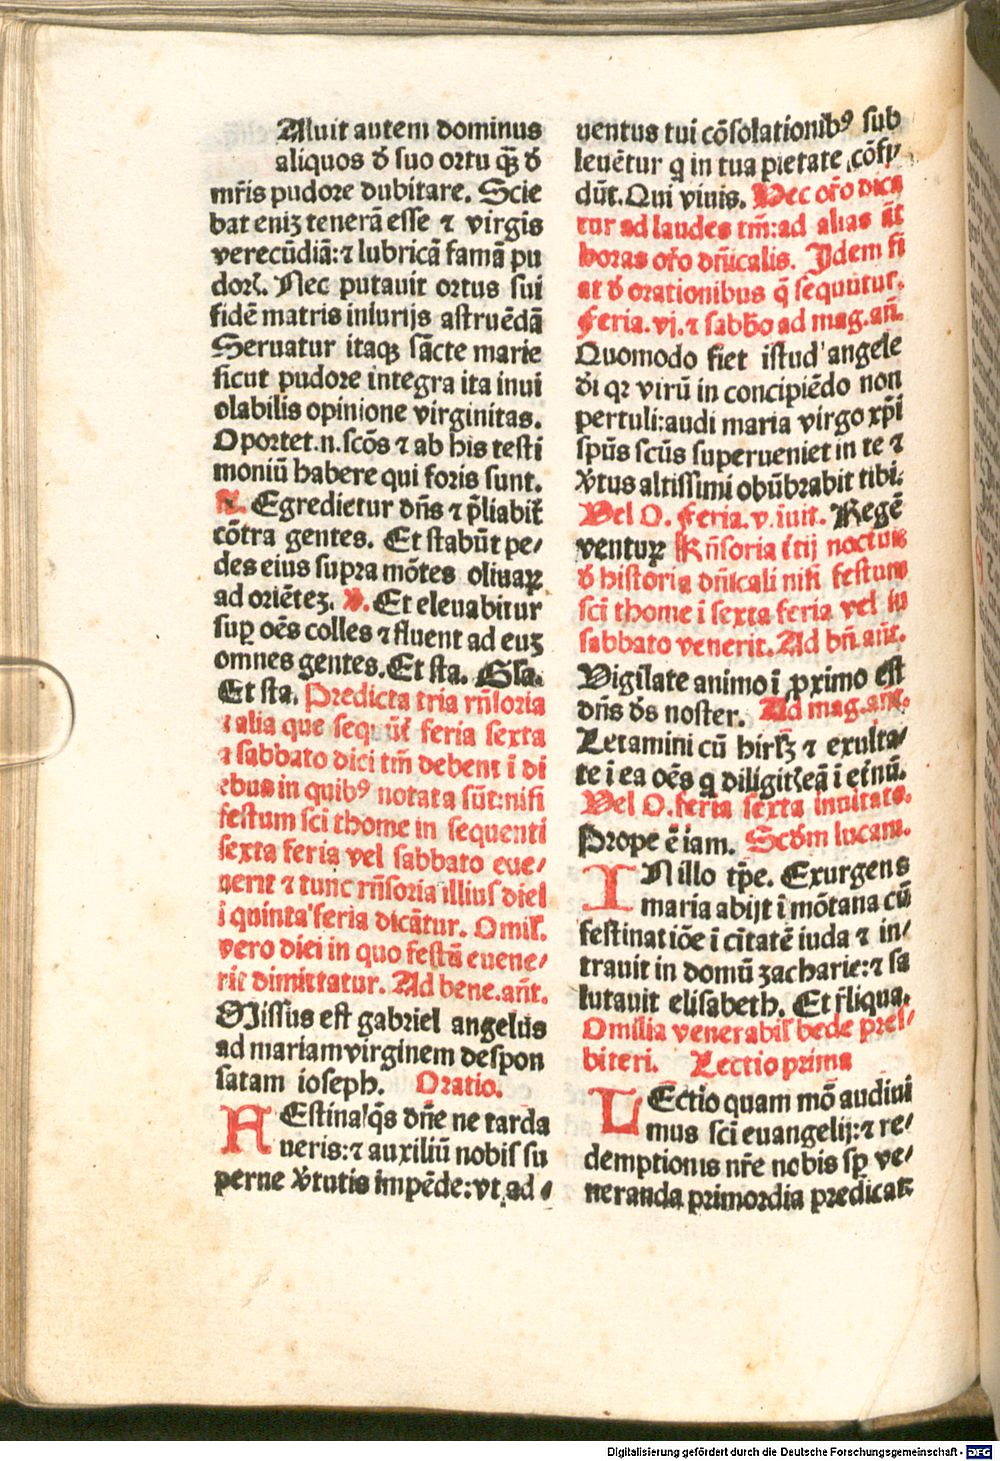 Aluit autem dominus
aliquos đ suo ortu qꝫ̃ đ
mr̃is pudore dubitare. Scie
bat eniꝫ tenerã esse ⁊ virgis
verecũdiã:⁊ lubricã famã pu
dorꝭ. Nec putauit ortus sui
fidẽ matris iniurijs astruẽdã
Seruatur itaqꝫ sãcte marie
sicut pudore integra ita inui
olabilis opinione virginitas.
Oportet.n.scõs ⁊ ab his testi
moniũ habere qui foris sunt.
℟. Egredietur dñs ⁊ p̃liabit̃
cõtra gentes. Et stabũt pe/
des eius supra mõtes oliuaꝝ
ad oriẽteꝫ. ℣. Et eleuabitur
suꝑ oẽs colles ⁊ fluent ad euꝫ
omnes gentes. Et sta. Gla.
Et sta. Predicta tria rñsoria
⁊ alia que sequũt̃ feria sexta
⁊ sabbato dici tm̃ debent ĩ di
ebus in quibꝰ notata sũt:nisi
festum sci thome in sequenti
sexta feria vel sabbato eue/
nerit ⁊ tunc rñsoria illius diei
ĩ quinta feria dicãtur. Omil̃.
vero diei in quo festũ euene/
rit dimittatur. Ad bene.añt.
Missus est gabriel angelus
ad mariam virginem despon
satam ioseph. Oratio.
FEstina q̃s dñe ne tarda
ueris:⁊ auxiliũ nobis su
perne v̾tutis impẽde:vt ad/
uentus tui cõsolationibꝰ sub
leuẽtur q in tua pietate cõfi
dũt. Qui viuis. Hec or̃o dica
tur ad laudes tm̃:ad alias añt
horas or̃o dñicalis. Idem fi
at đ orationibus q̃ sequũtur.
Feria.vj.⁊ sabb̃o ad mag.añ.
Quomodo fiet istud angele
đi qꝛ virũ in concipiẽdo non
pertuli:audi maria virgo xp̃i
spũs scũs superueniet in te ⁊
v̾tus altissimi obũbrabit tibi.
Vel O. Feria.v.ĩuit. Regẽ
venturꝝ Rñsoria ĩ iij noctuis
đ historia dñicali nisi festum
sci thome ĩ sexta feria vel in
sabbato venerit. Ad bñ añt.
Vigilate animo ĩ ꝓximo est
dñs đs noster. Ad mag.añt.
Letamini cũ hirlꝫ ⁊ exulta/
te ĩ ea oẽs q diligitꝭ eã ĩ etnũ.
Vel O.feria sexta inuitato.
Prope ẽ iam. Scđm lucam.
IN illo tp̃e. Exurgens
maria abijt ĩ mõtana cũ
festinatiõe ĩ citatẽ iuda ⁊ in/
trauit in domũ zacharie:⁊ sa
lutauit elisabeth. Et r̃liqua.
Omilia venerabil̃ bede pres/
biteri. Lectio prima
LEctio quam mõ audiui
mus sci euangelij:⁊ re/
demptionis nr̃e nobis sꝑ ve/
neranda primordia predicat:
Digitalisierung gefördert durch die Deutsche Forschungsgemeinschaft - DFG